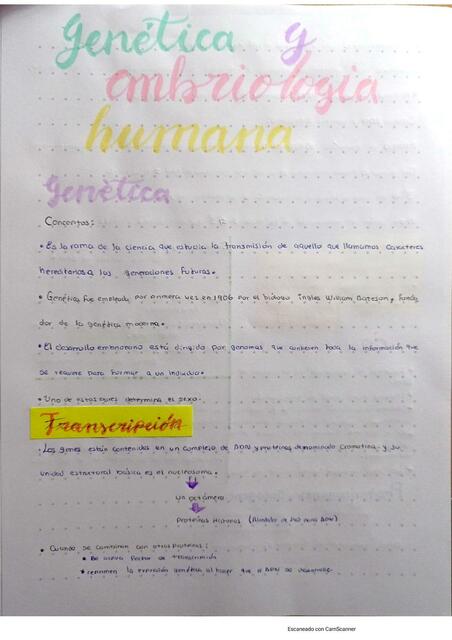 Genética y
embriología
humana
Genética
Conceptos:
• Es la rama de la ciencia que estudia la transmisión de aquello que llamamos caracteres
hereditarios a las generaciones futuras.
• Genética fue empleada por primera vez en 1906 por el biólogo ingles William Bateson, funda
dor de la genética moderna.
• El desarrollo embrionario está dirigido por genomas que contienen toda la información que
se requiere para formar a un individuo.
• Uno de estos genes determina el sexo.
Transcripción
• Los genes están contenidos en un complejo de ADN y proteínas denominado cromatina y su
unidad estructural básica es el nucleosoma.
un octámero
proteínas histonas (Alrededor de ADN)
• Cuando se combinan con otras proteínas:
• Se activa factor de transcripción
• reprimen la expresión genética al hacer que el ADN se desenrolle
Escaneado con CamScanner